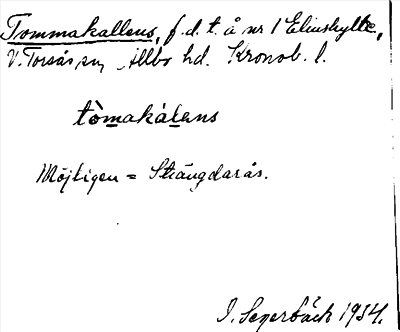 Tommakallens, f.d.t. å nr 1 Elinshylte,
V. Torsås sn, Allbo hd. Kronob. l.
tòmakálens
Möjligen = Strängdarås.
I. Segerbäck 1934.